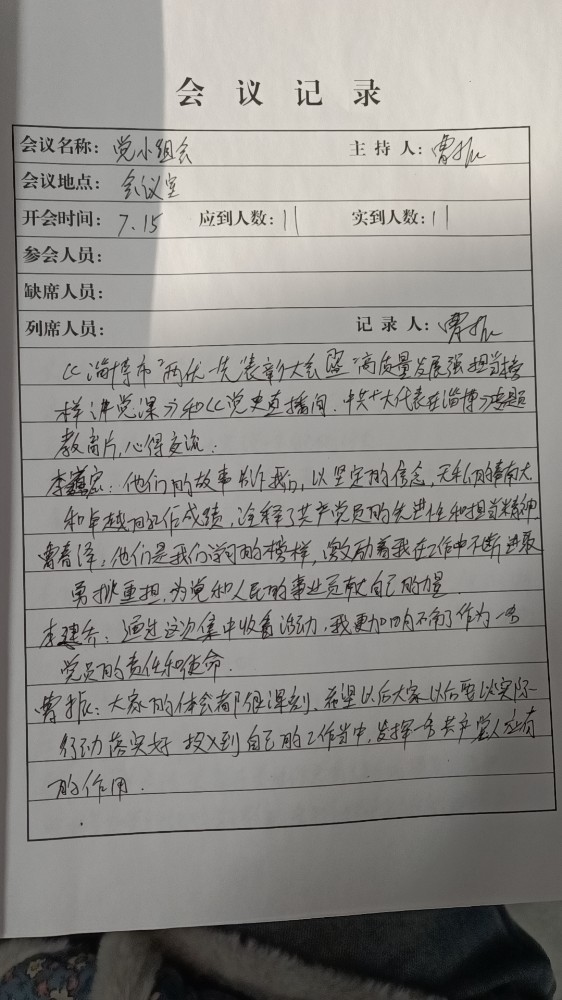 会议记录
会议名称：党小组会 主持人：曹振
会议地点：会议室
开会时间：7.15 应到人数：11 实到人数：11
参会人员：
缺席人员：
列席人员： 记录人：曹振
《淄博市“两优一先”表彰大会暨“高质量发展强担当榜
样讲党课》和《党史直播间.中共十大代表在淄博》专题
教育片，心得交流：
李家：他们的故事 我们，以坚定的信念，无私的奉献
和卓越的工作成绩，诠释了共产党员的先进性和担当精神.
曹春泽：他们是我们学习的榜样，激励着我在工作中不断进取
勇挑重担，为党和人民的事业贡献自己的力量.
李建乔：通过这次集中收看活动，我更加明确了作为一名
党员的责任和使命.
曹振：大家的体会都很深刻，希望以后大家以后要以实际
行动落实好 投入到自己的工作当中，发挥一名共产党人应有
的作用.